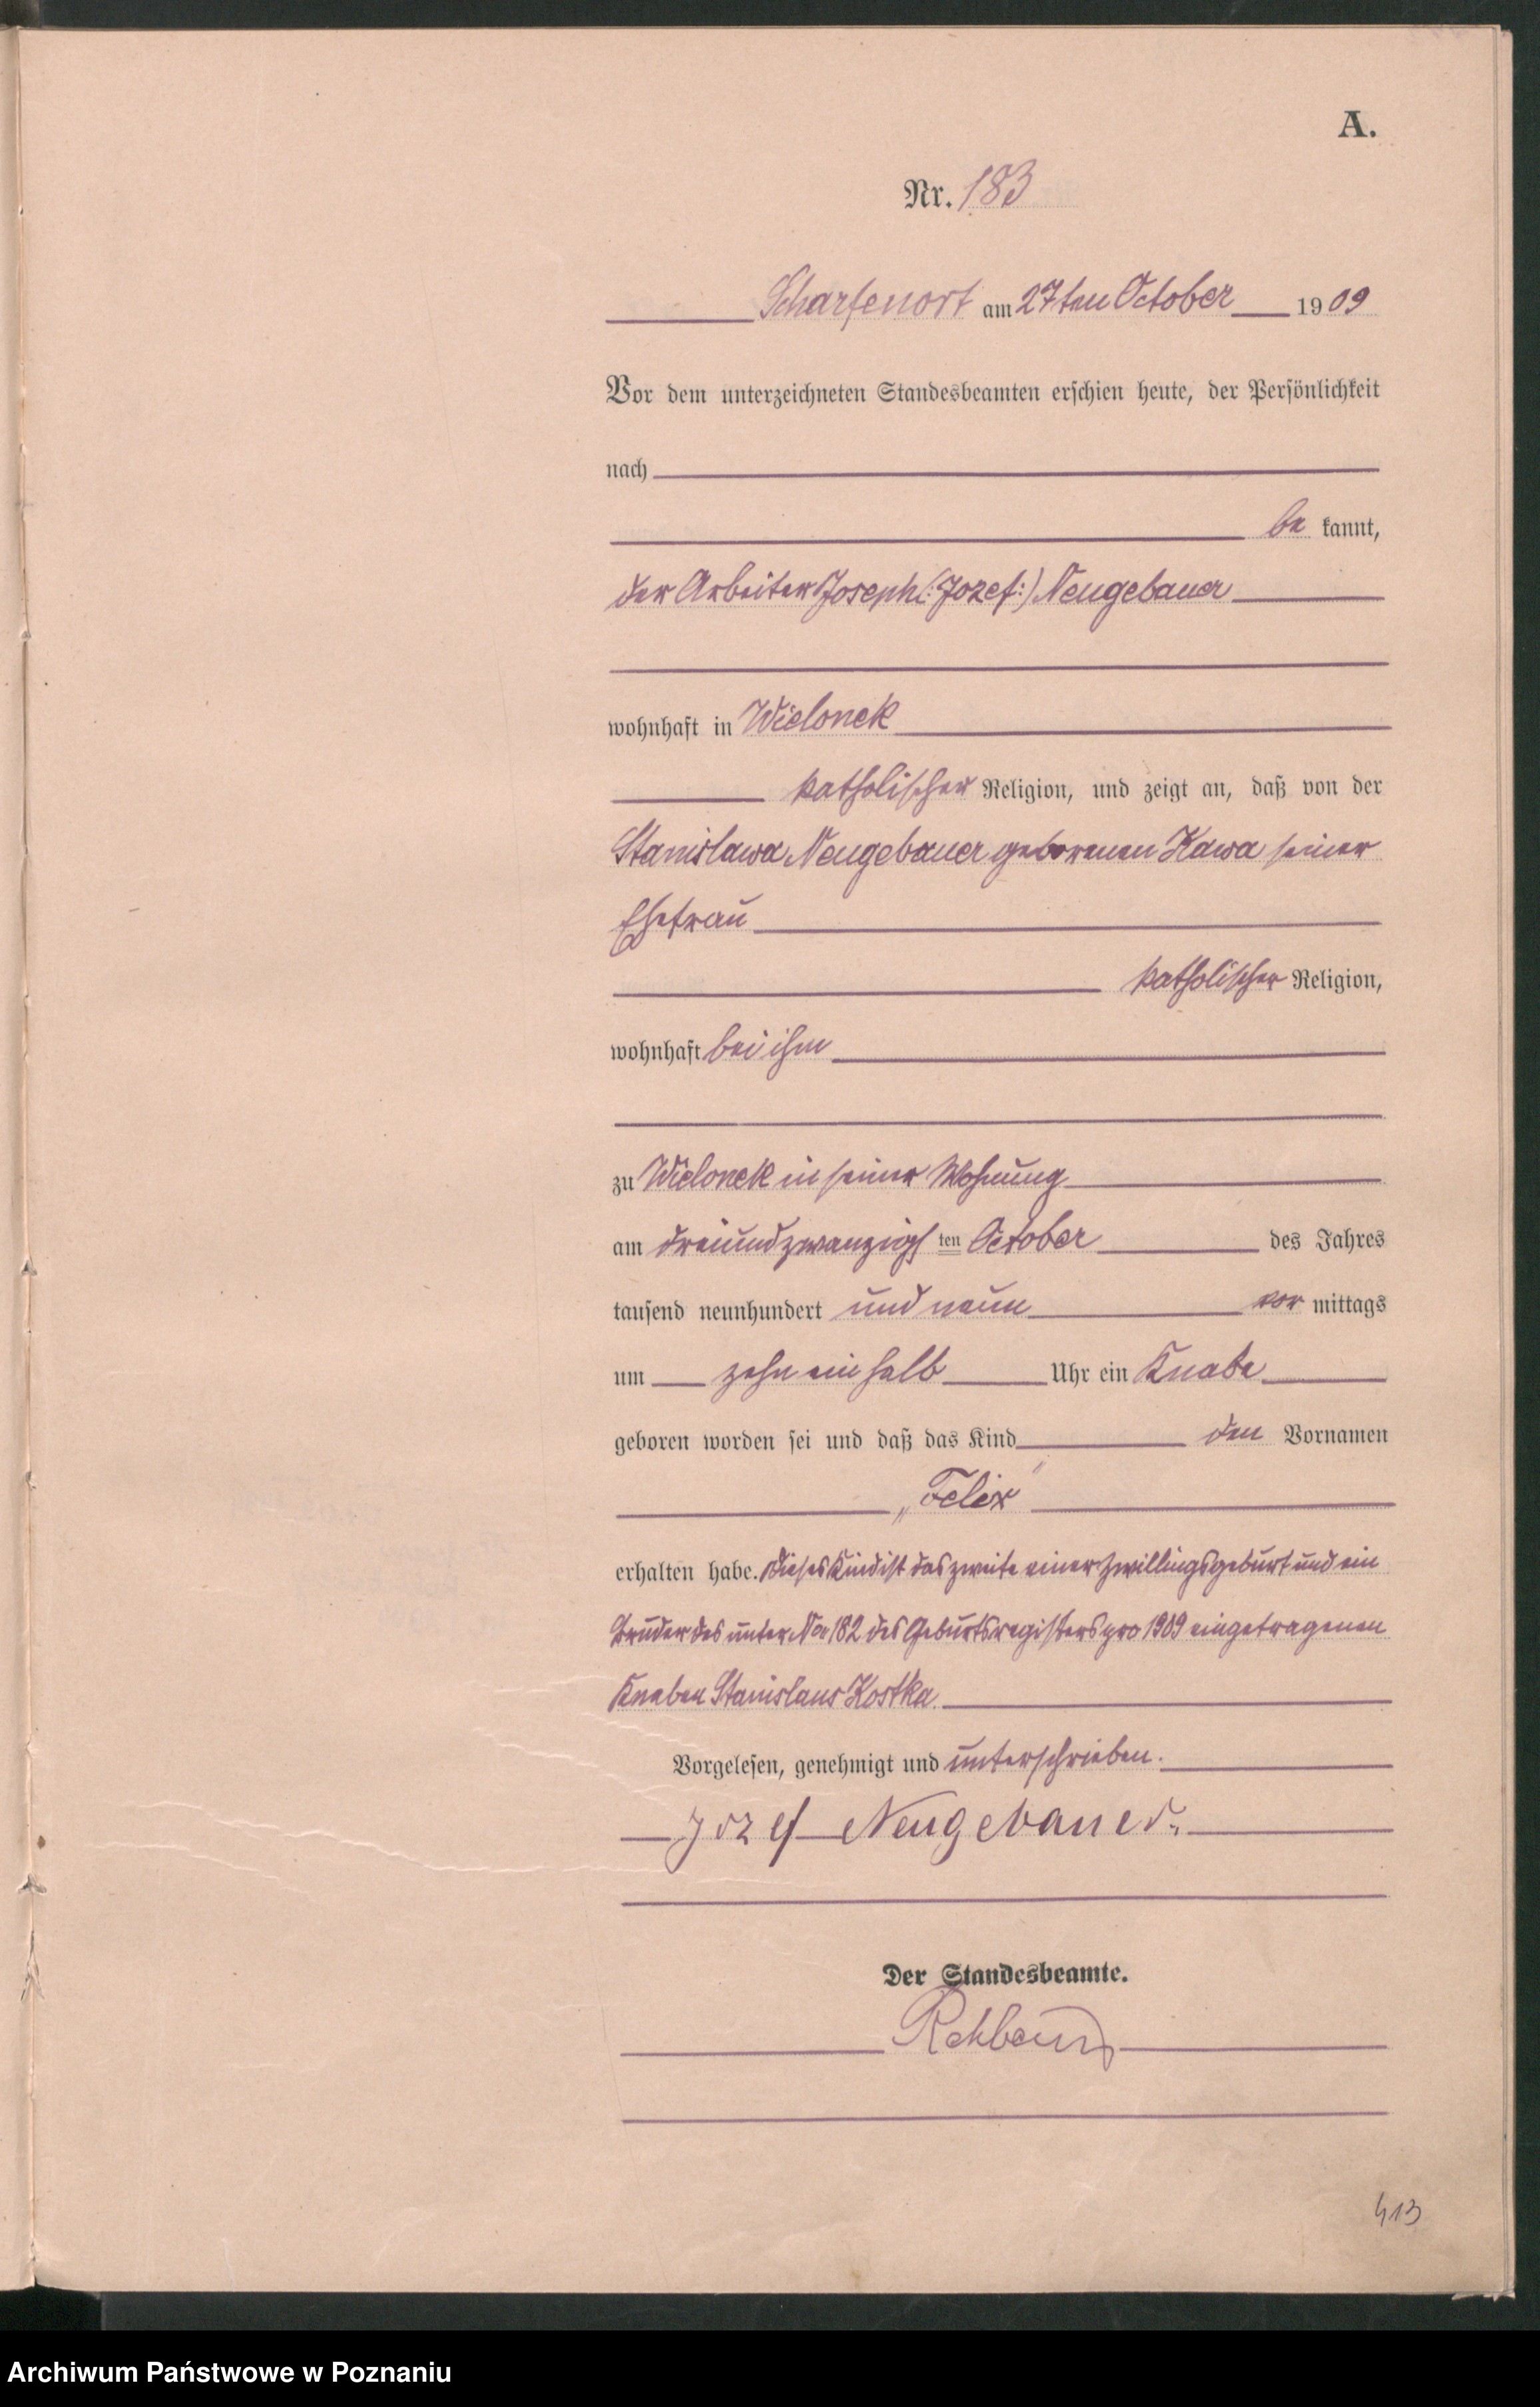 A.
Nr. 183
Scharfenort am 27ten October 1909
Vor dem unterzeichneten Standesbeamten erschien heute, der Persönlichkeit
nach
be kannt,
der Arbeiter Joseph (:Jozef:) Neugebauer
wohnhaft in Wielonek
katholischer Religion, und zeigt an, daß von der
Stanislawa Neugebauer geborenen Kawa seiner
Ehefrau
katholischer Religion,
wohnhaft bei ihm
zu Wielonek in seiner Wohnung
am dreiundzwanzigsten October des Jahres
tausend neunhundert und neun vor mittags
um zehn ein halb Uhr ein Knabe
geboren worden sei und daß das Kind den Vornamen
„Felix"
erhalten habe. Dieses Kind ist das zweite einer Zwillingsgeburt und ein
Bruder des unter No 182 des Geburtsregisters pro 1909 eingetragenen
Knaben Stanislaus Kostka.
Vorgelesen, genehmigt und unterschrieben.
Jozef Neugebauer.
Der Standesbeamte.
413
Archiwum Państwowe w Poznaniu